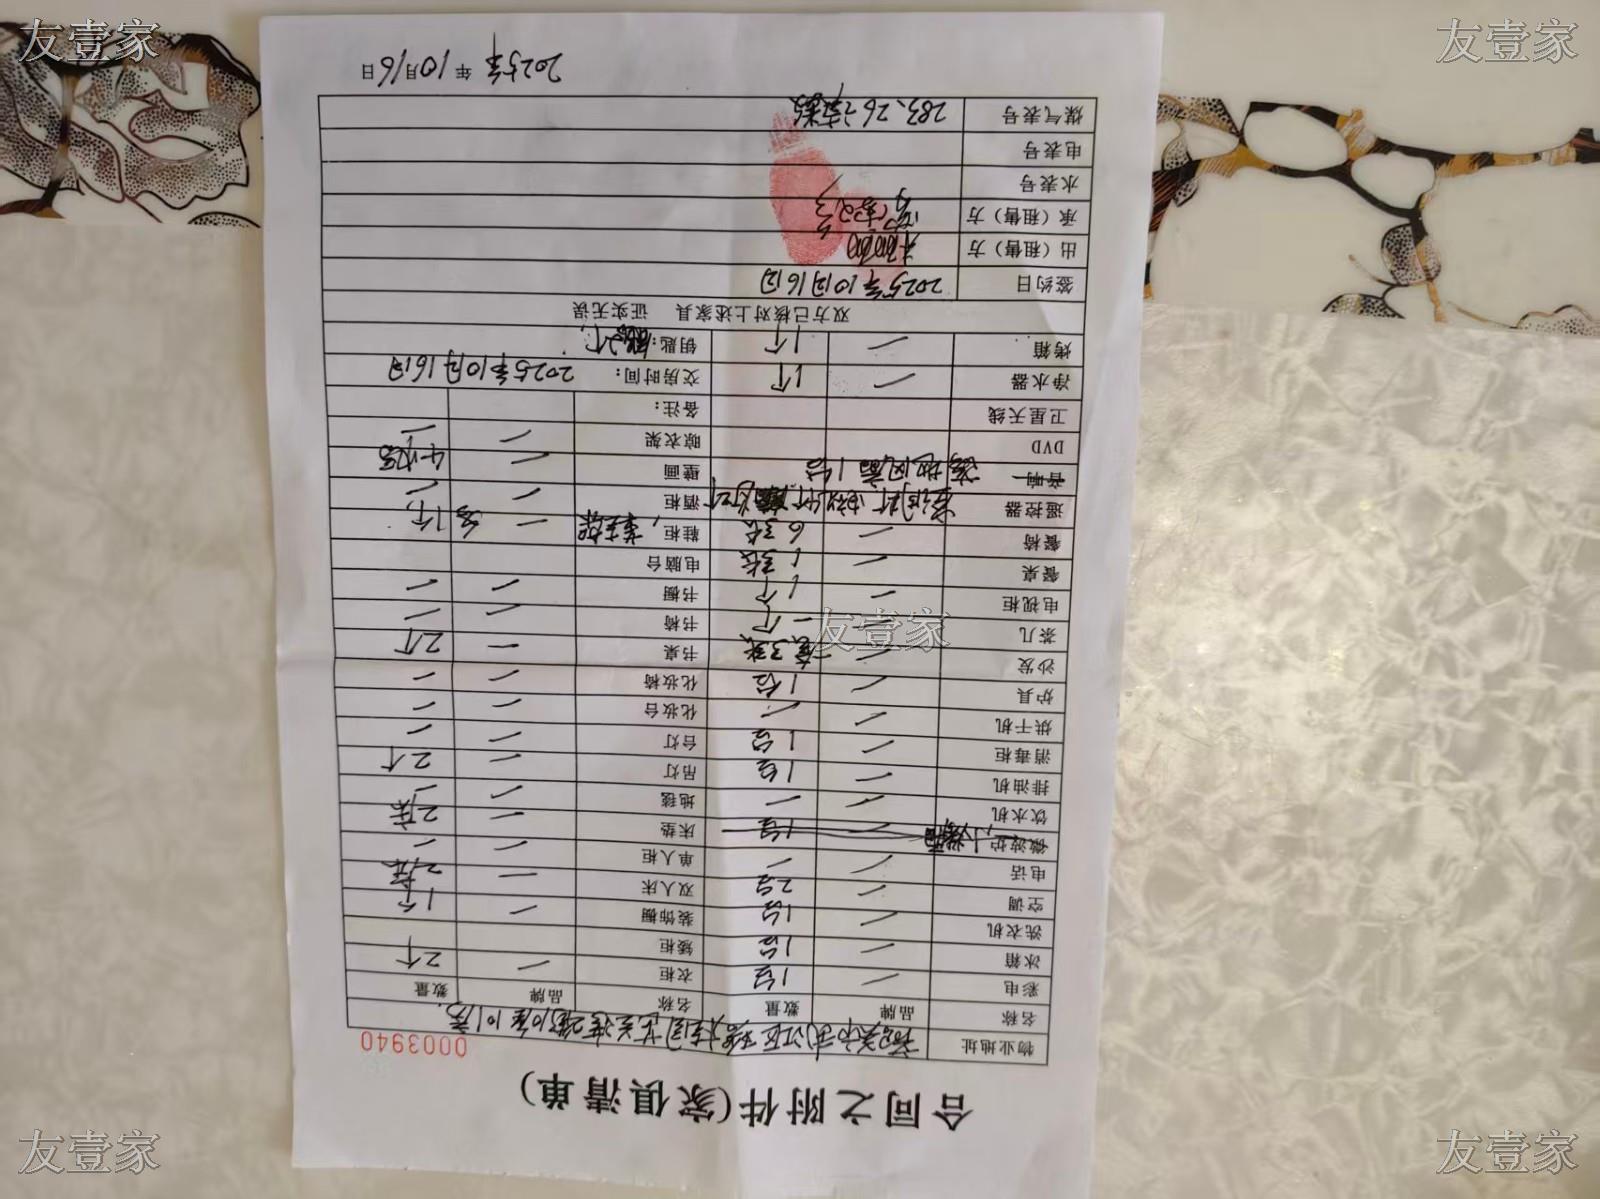 友壹家
友壹家
合同之附件(家俱清单)
0003940
物业地址
名称 品牌 数量 名称 品牌 数量
彩电 1台 衣柜 2个
冰箱 1台 矮柜
洗衣机 1台 装饰橱 1个
空调 2台 双人床 2床
电话 单人柜
微波炉 1台 床垫 2床
饮水机 地毯
排油机 1台 吊灯 2个
消毒柜 1台 台灯
烘干机 化妆台
炉具 1台 化妆椅
沙发 书桌 2个
茶几 一个 书椅
电视柜 1个 书橱
餐桌 1张 电脑台
餐椅 6张 鞋柜 1个
遥控器 酒柜
音响 落地风扇1台 壁画
DVD 晾衣架
卫星天线 备注:
净水器 1个 交房时间: 2025年10月16日
烤箱 1个 钥匙:
双方已核对上述家具 证实无误
签约日 2025年10月16日
出(租售)方
承(租售)方
水表号
电表号
煤气表号 283.26
2025年 年10月16日
友壹家
友壹家
友壹家